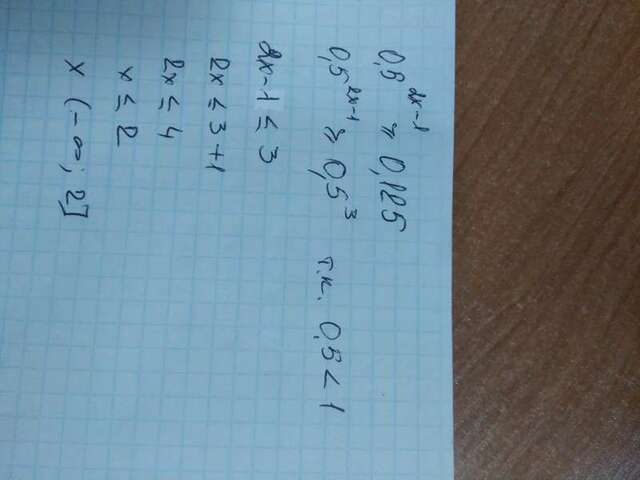 0,5^{2x-1} ≥ 0,125
0,5^{2x-1} ≥ 0,5^3 т.к. 0,5 < 1
2x-1 ≤ 3
2x ≤ 3+1
2x ≤ 4
x ≤ 2
x (-∞; 2]